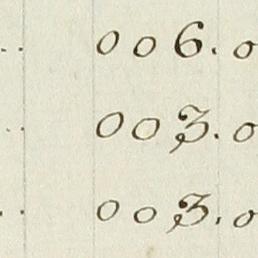 .. 0 0 6. 0
.. 0 0 3. 0
.. 0 0 3. 0